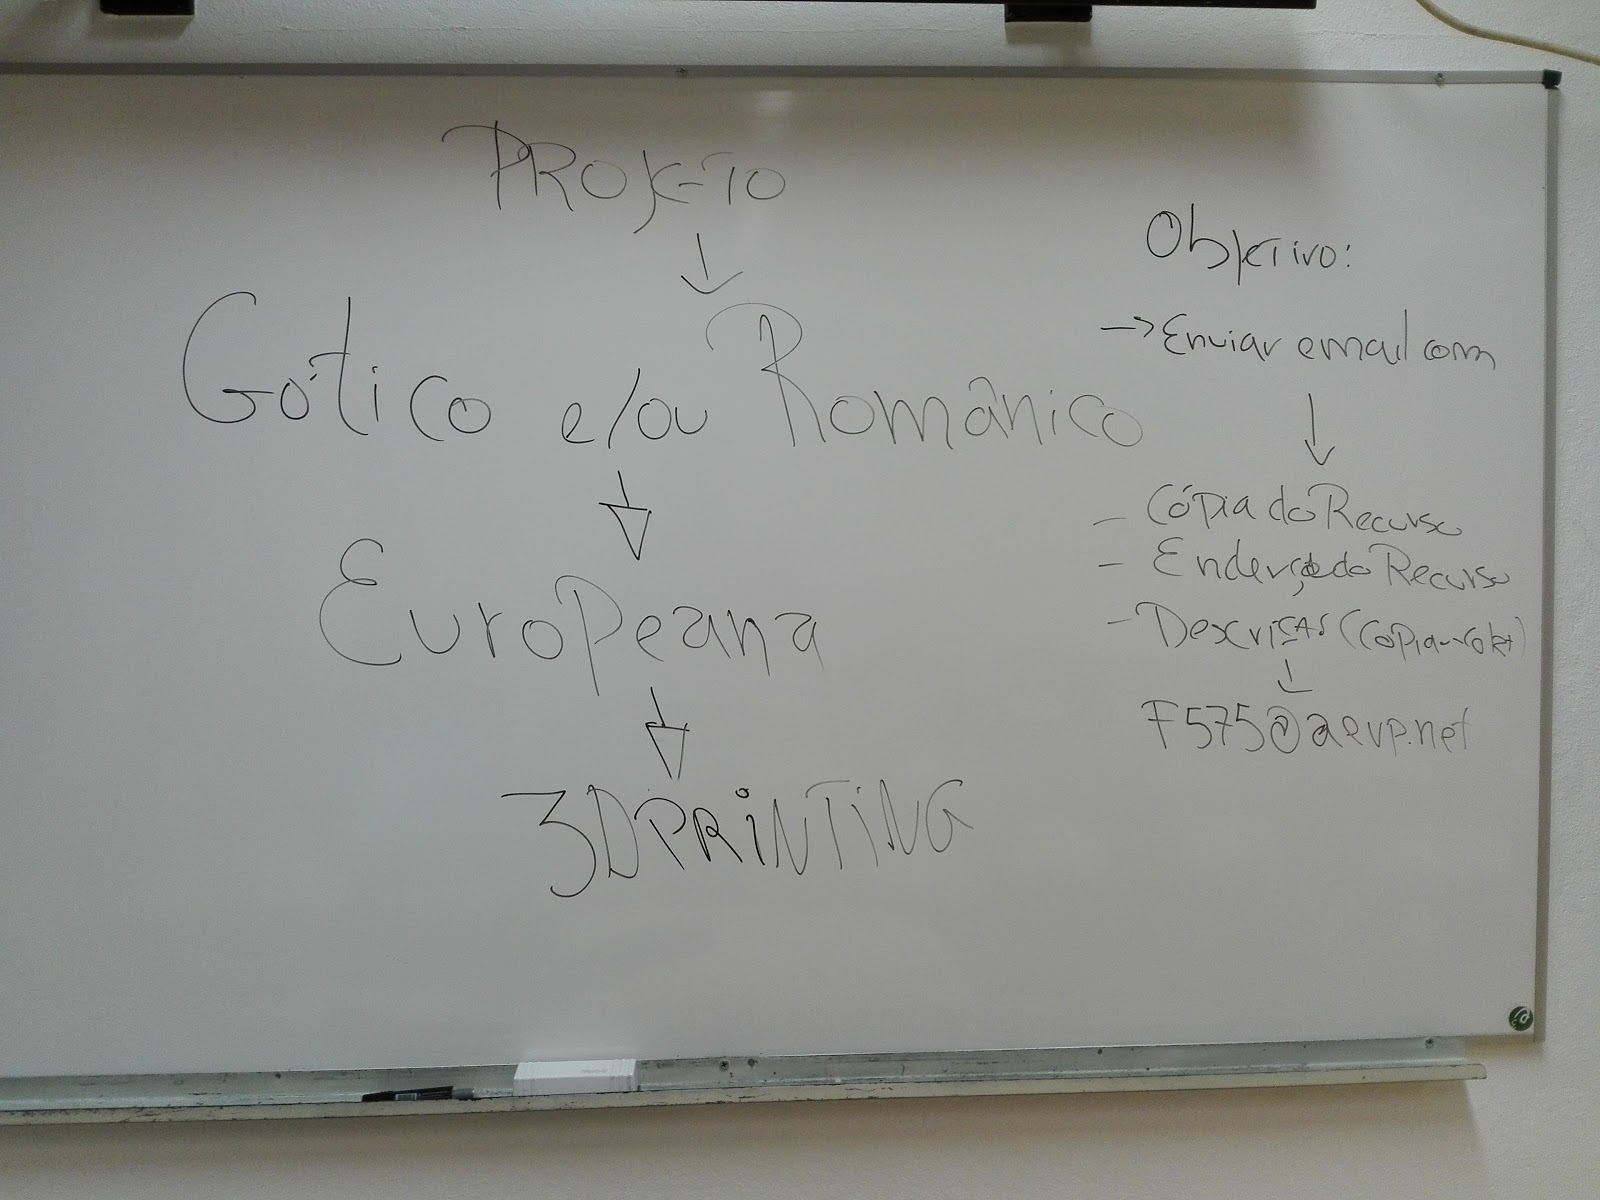 PROJETO
Gótico e/ou Românico
Europeana
3D PRINTING
Objetivo:
→ Enviar email com
- Cópia do Recurso
- Endereço do Recurso
- Descrição (Copiar-colar)
F575@aevp.net